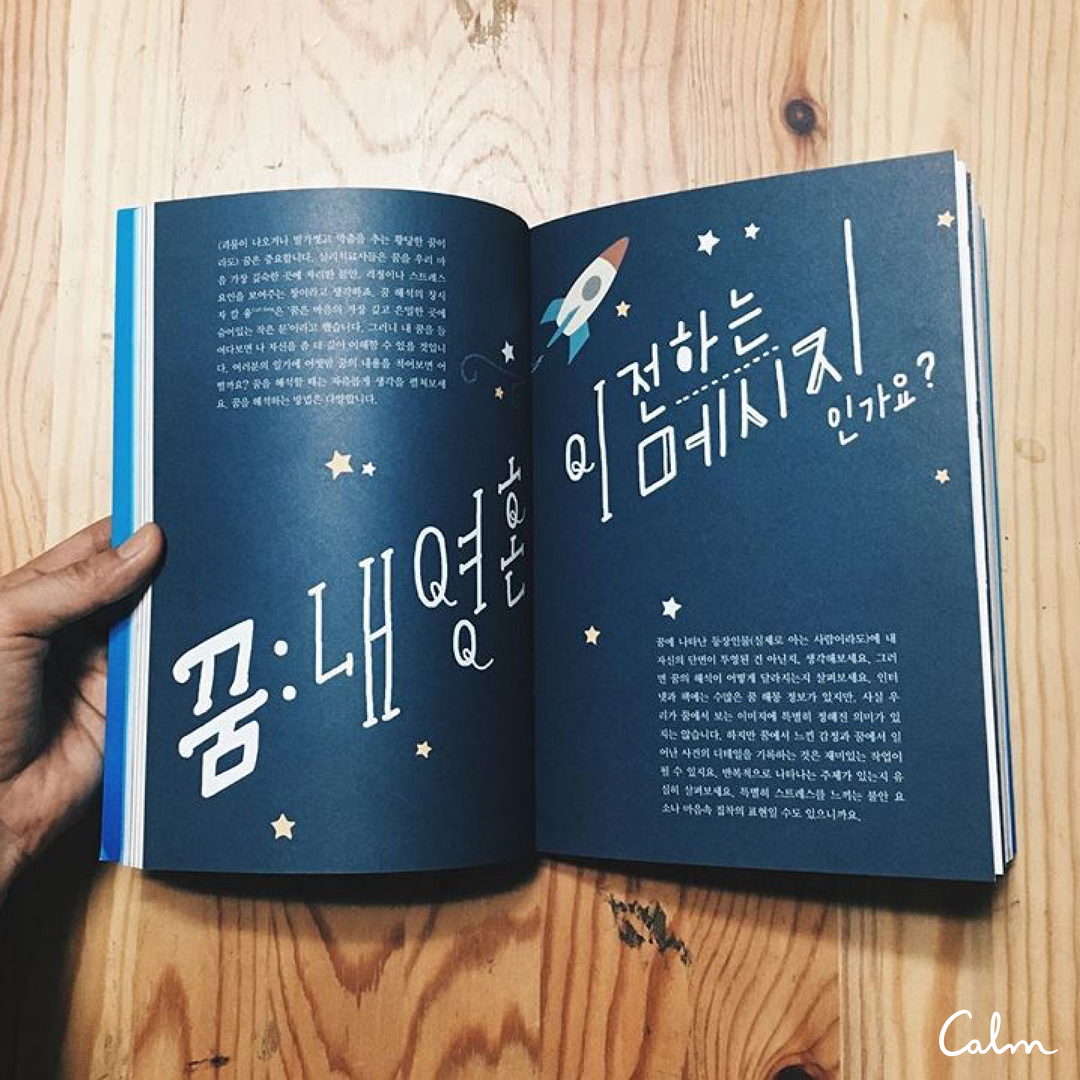 (괴물이 나오거나 발가벗고 막춤을 추는 황당한 꿈이
라도) 꿈은 중요합니다. 심리치료사들은 꿈을 우리 마
음 가장 깊숙한 곳에 자리한 불안, 걱정이나 스트레스
요인을 보여주는 창이라고 생각하죠. 꿈 해석의 창시
자 칼 융은 '꿈은 마음의 가장 깊고 은밀한 곳에
숨어있는 작은 문'이라고 했습니다. 그러니 내 꿈을 들
여다보면 나 자신을 좀 더 깊이 이해할 수 있을 것입니
다. 여러분의 일기에 어젯밤 꿈의 내용을 적어보면 어
떨까요? 꿈을 해석할 때는 자유롭게 생각을 펼쳐보세
요. 꿈을 해석하는 방법은 다양합니다.
꿈: 내 영혼
이 전하는
메시지
인가요?
꿈에 나타난 등장인물(실제로 아는 사람이라도)에 내
자신의 단면이 투영된 건 아닌지, 생각해보세요. 그러
면 꿈의 해석이 어떻게 달라지는지 살펴보세요. 인터
넷과 책에는 수많은 꿈 해몽 정보가 있지만, 사실 우
리가 꿈에서 보는 이미지에 특별히 정해진 의미가 있
지는 않습니다. 하지만 꿈에서 느낀 감정과 꿈에서 일
어난 사건의 디테일을 기록하는 것은 재미있는 작업이
될 수 있지요. 반복적으로 나타나는 주제가 있는지 유
심히 살펴보세요. 특별히 스트레스를 느끼는 불안 요
소나 마음속 집착의 표현일 수도 있으니까요.
Calm